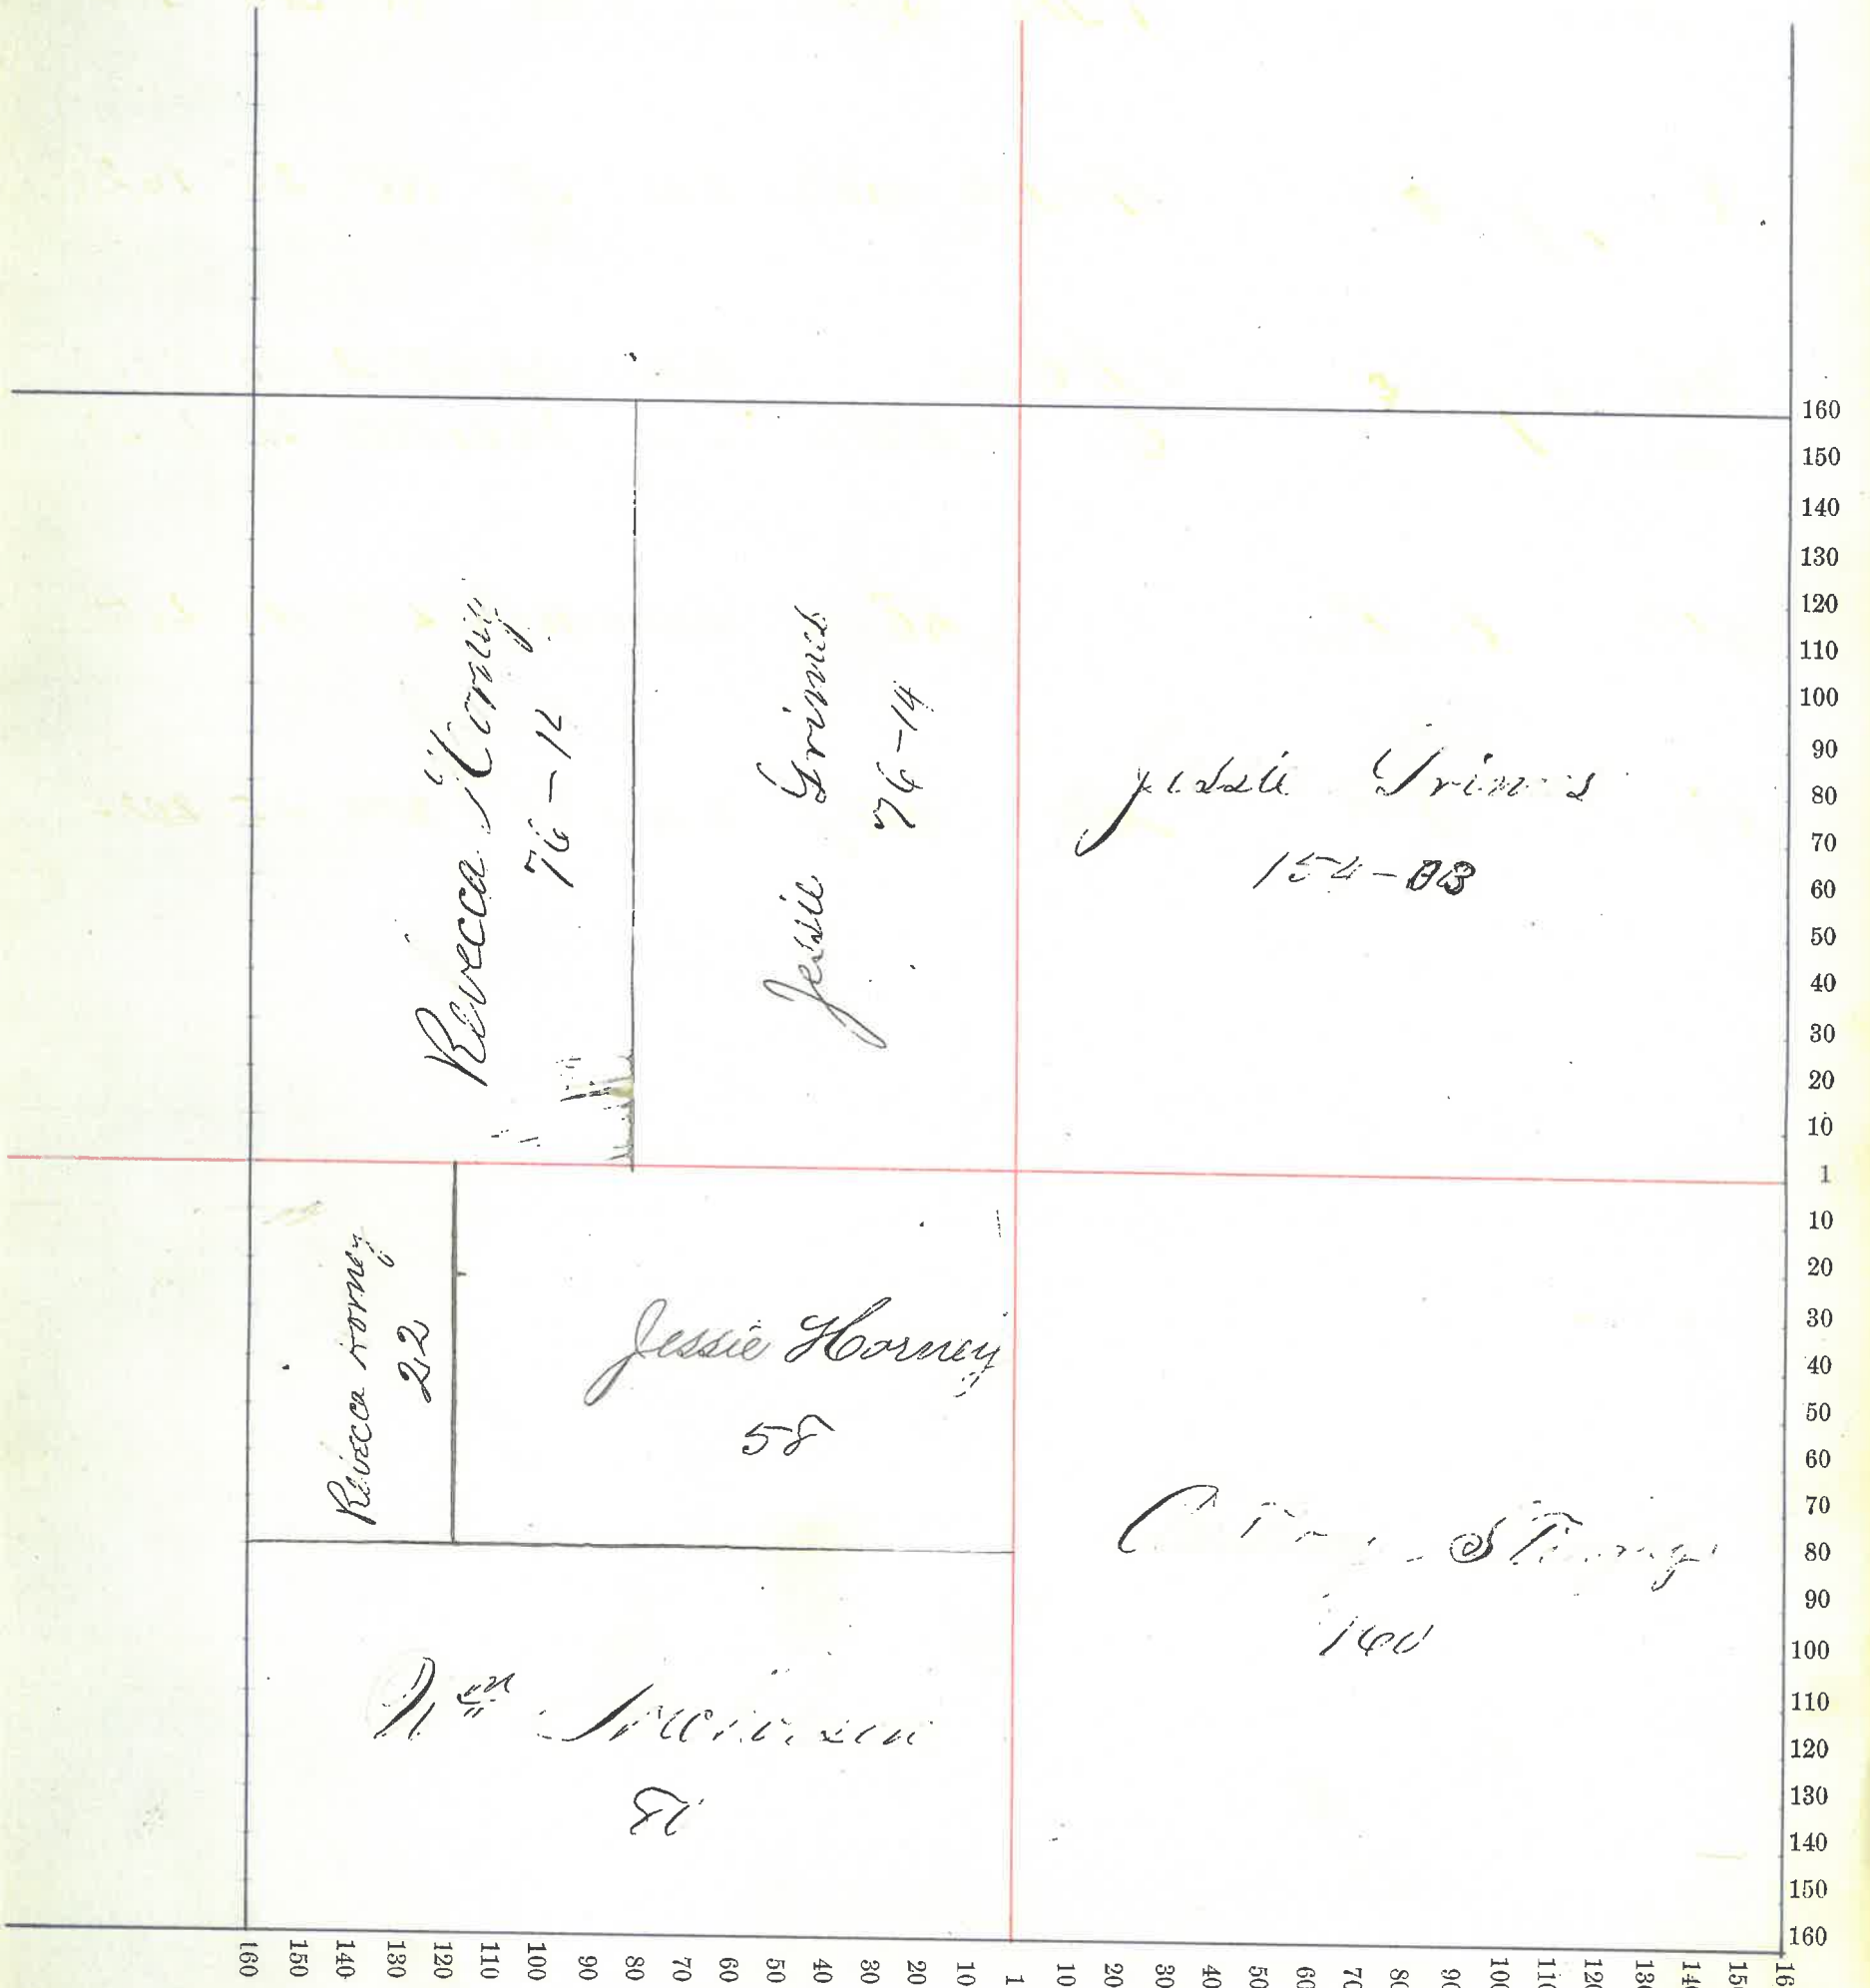 Revecca Horney
76-12
Jessie Grimes
76-14
Jessie Grimes
154-
Revecca
22
Jessie Horney
58
160
Wm
160
150
140
130
120
110
100
90
80
70
60
50
40
30
20
10
1
10
20
30
40
50
60
70
80
90
100
110
120
130
140
150
160
160
150
140
130
120
110
100
90
80
70
60
50
40
30
20
10
1
10
20
30
40
50
60
70
80
90
100
110
120
13
14
15
16